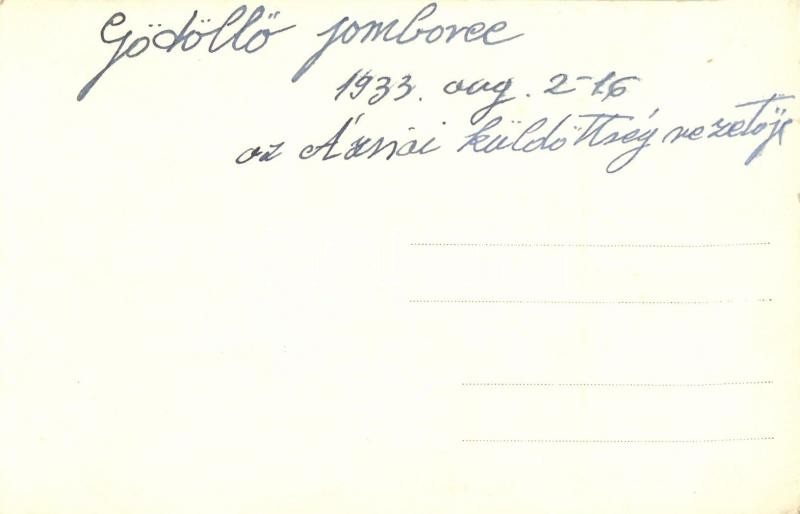 Gödöllő jamboree
1933. aug. 2-16
az Ázsiai küldöttség vezetője